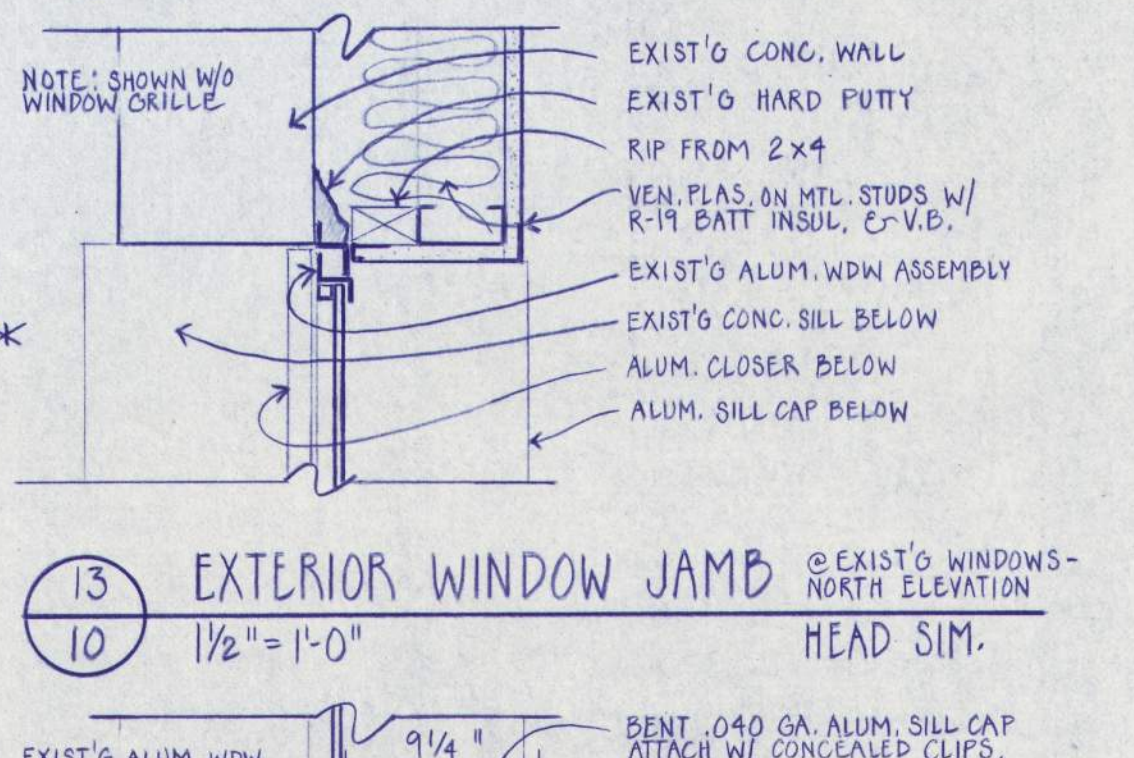 NOTE: SHOWN W/O
WINDOW GRILLE
EXIST'G CONC. WALL
EXIST'G HARD PUTTY
RIP FROM 2x4
VEN. PLAS. ON MTL. STUDS W/
R-19 BATT INSUL. & V.B.
EXIST'G ALUM. WDW ASSEMBLY
EXIST'G CONC. SILL BELOW
ALUM. CLOSER BELOW
ALUM. SILL CAP BELOW
*
13
10
EXTERIOR WINDOW JAMB
@ EXIST'G WINDOWS-
NORTH ELEVATION
1 1/2" = 1'-0"
HEAD SIM.
EXIST'G ALUM. WDW
9 1/4"
BENT .040 GA. ALUM. SILL CAP
ATTACH W/ CONCEALED CLIPS.